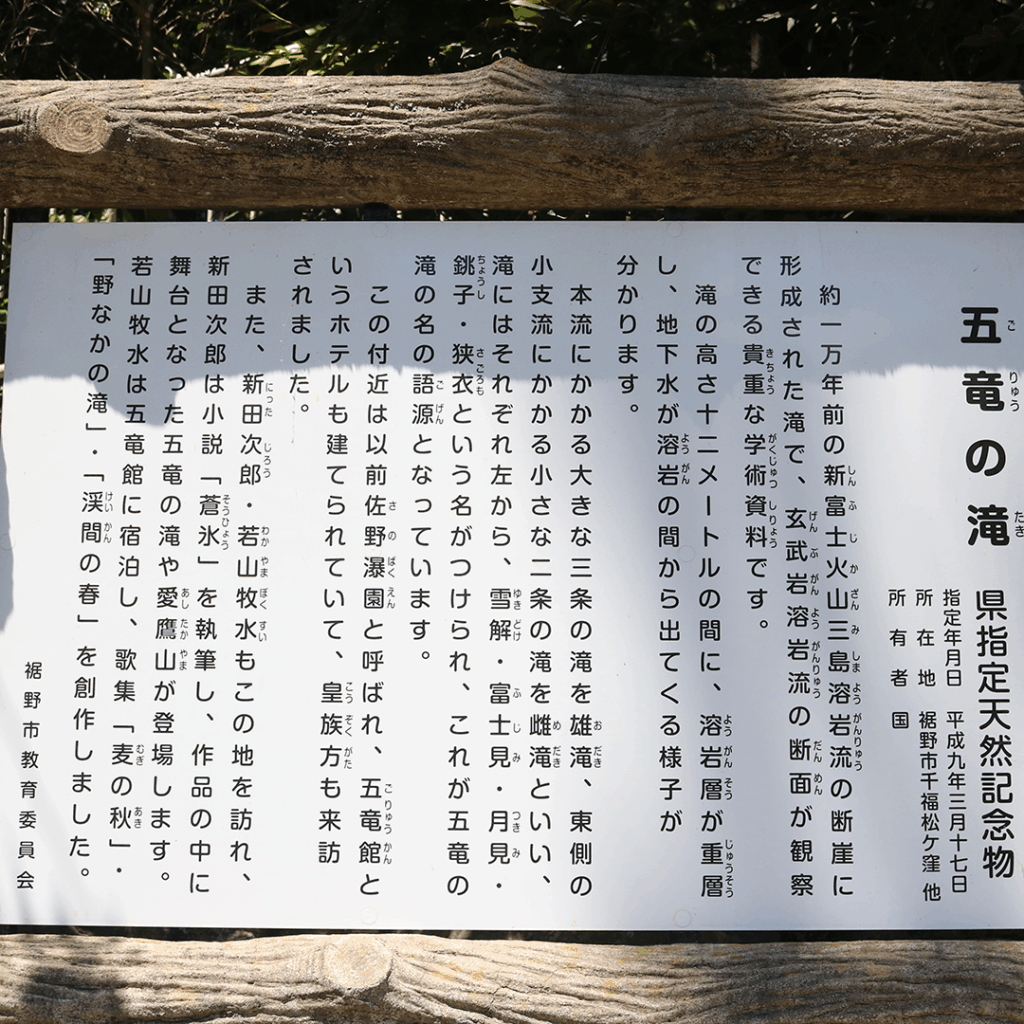 五竜の滝 県指定天然記念物
指定年月日 平成九年三月十七日
所在地 裾野市千福松ケ窪 他
所有者 国
約一万年前の新富士火山三島溶岩流の断崖に
形成された滝で、玄武岩溶岩流の断面が観察
できる貴重な学術資料です。
滝の高さ十二メートルの間に、溶岩層が重層
し、地下水が溶岩の間から出てくる様子が
分かります。
本流にかかる大きな三条の滝を雄滝、東側の
小支流にかかる小さな二条の滝を雌滝といい、
滝にはそれぞれ左から、雪解・富士見・月見・
銚子・狭衣という名がつけられ、これが五竜の
滝の名の語源となっています。
この付近は以前佐野瀑園と呼ばれ、五竜館と
いうホテルも建てられていて、皇族方も来訪
されました。
また、新田次郎・若山牧水もこの地を訪れ、
新田次郎は小説「蒼氷」を執筆し、作品の中に
舞台となった五竜の滝や愛鷹山が登場します。
若山牧水は五竜館に宿泊し、歌集「麦の秋」・
「野なかの滝」・「渓間の春」を創作しました。
裾野市教育委員会